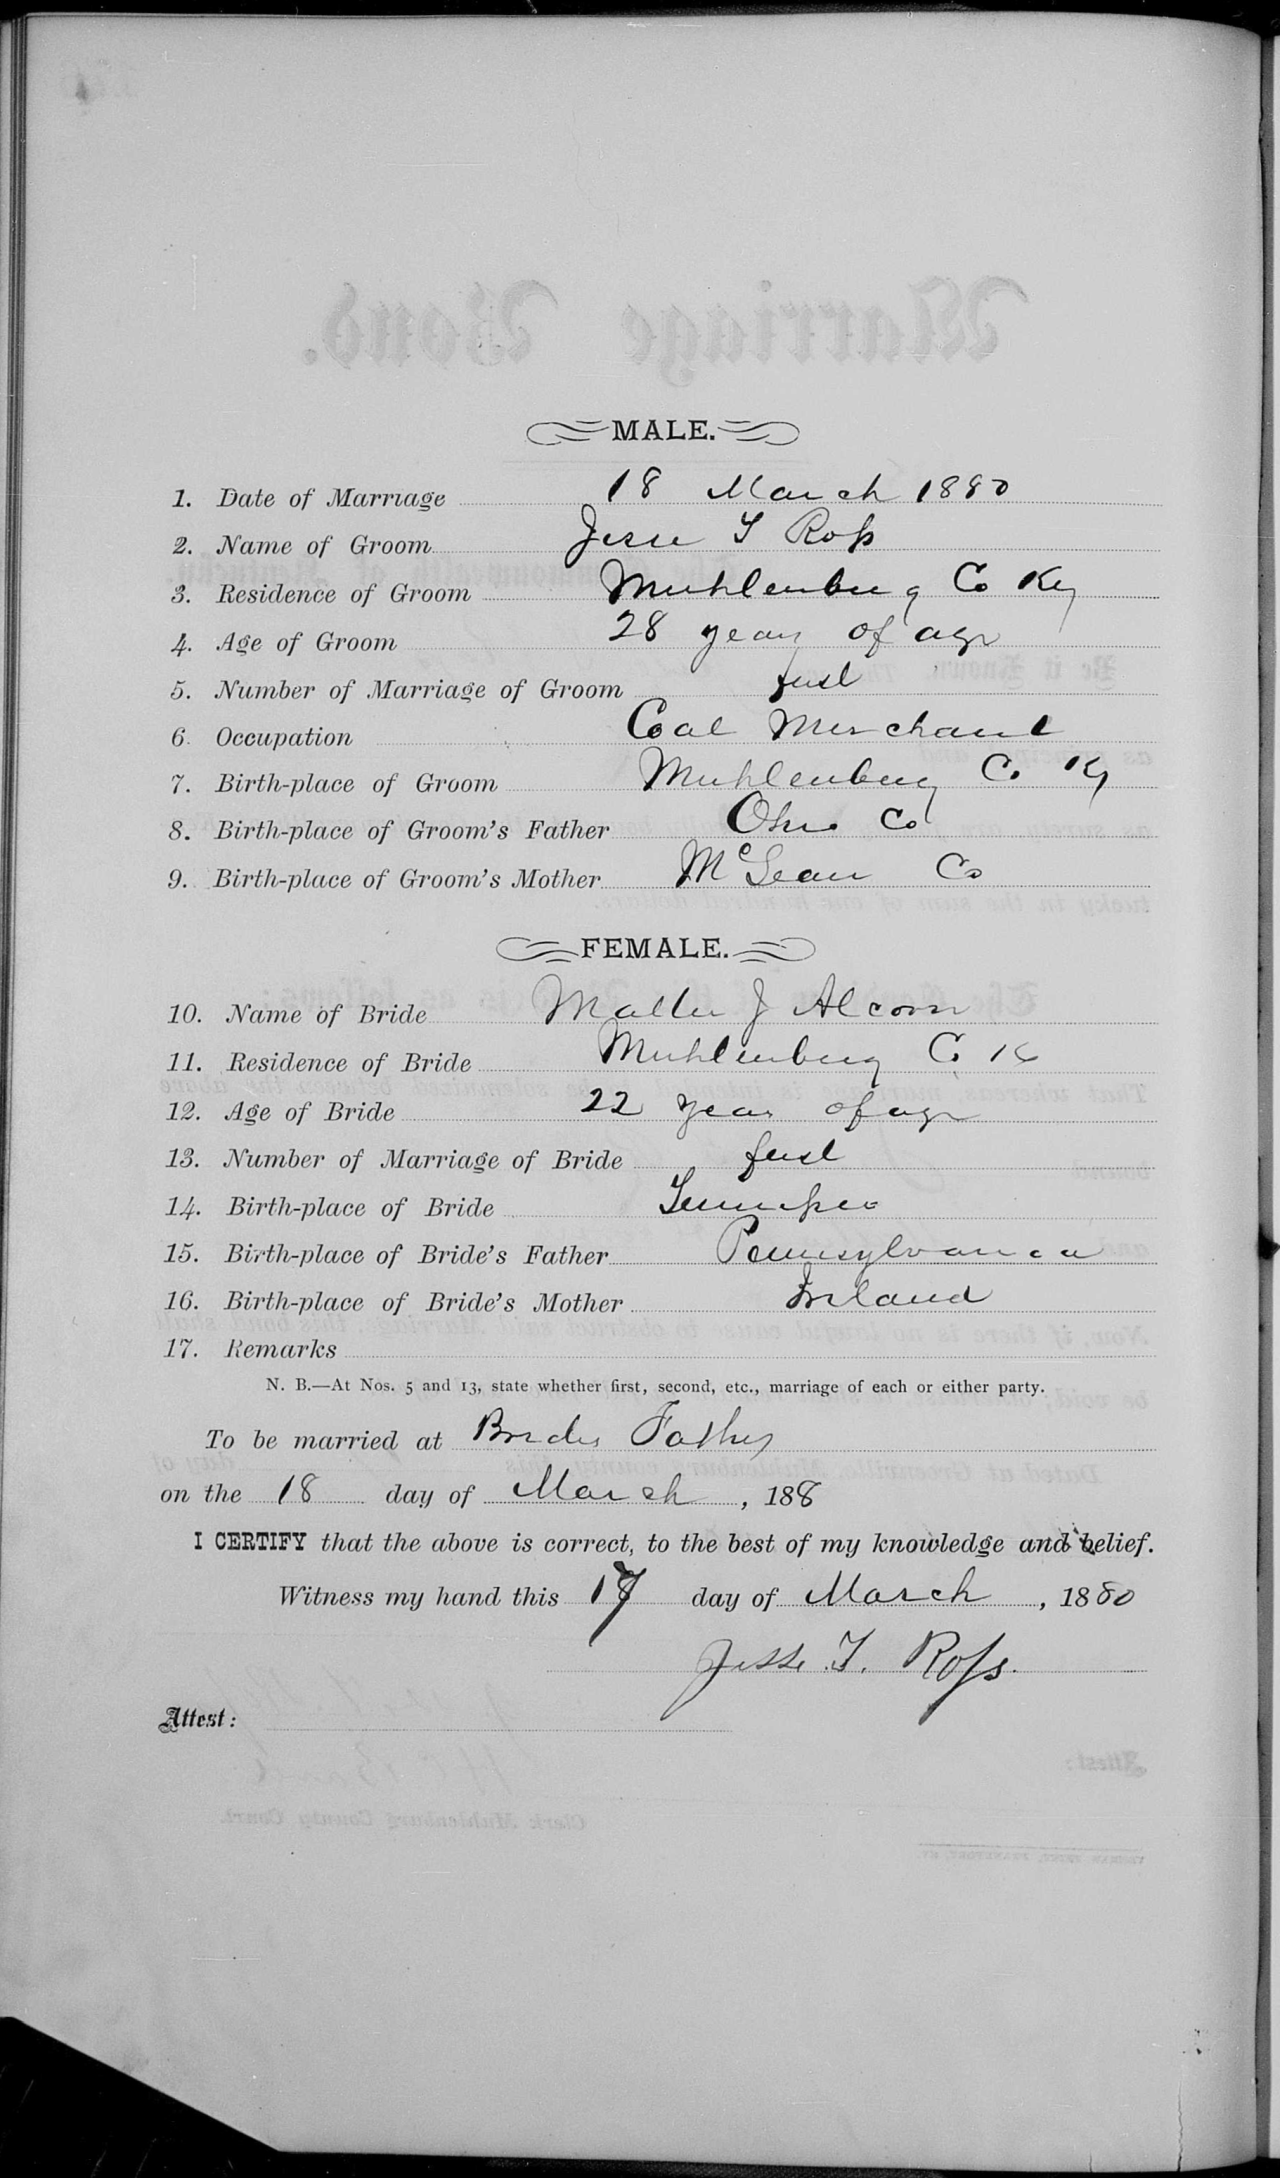 MALE.
1. Date of Marriage 18 March 1880
2. Name of Groom Jesse T Ross
3. Residence of Groom Muhlenburg Co Ky
4. Age of Groom 28 years of age
5. Number of Marriage of Groom first
6. Occupation Coal Merchant
7. Birth-place of Groom Muhlenburg Co Ky
8. Birth-place of Groom's Father Ohio Co
9. Birth-place of Groom's Mother McLean Co
FEMALE.
10. Name of Bride J Alcorn
11. Residence of Bride Muhlenburg Co K
12. Age of Bride 22 years of age
13. Number of Marriage of Bride first
14. Birth-place of Bride Tennessee
15. Birth-place of Bride's Father Pennsylvania
16. Birth-place of Bride's Mother Ireland
17. Remarks
N. B.—At Nos. 5 and 13, state whether first, second, etc., marriage of each or either party.
To be married at Brides Fathers
on the 18 day of March, 188
I CERTIFY that the above is correct, to the best of my knowledge and belief.
Witness my hand this 17 day of March, 1880
Jesse T. Ross.
Attest: